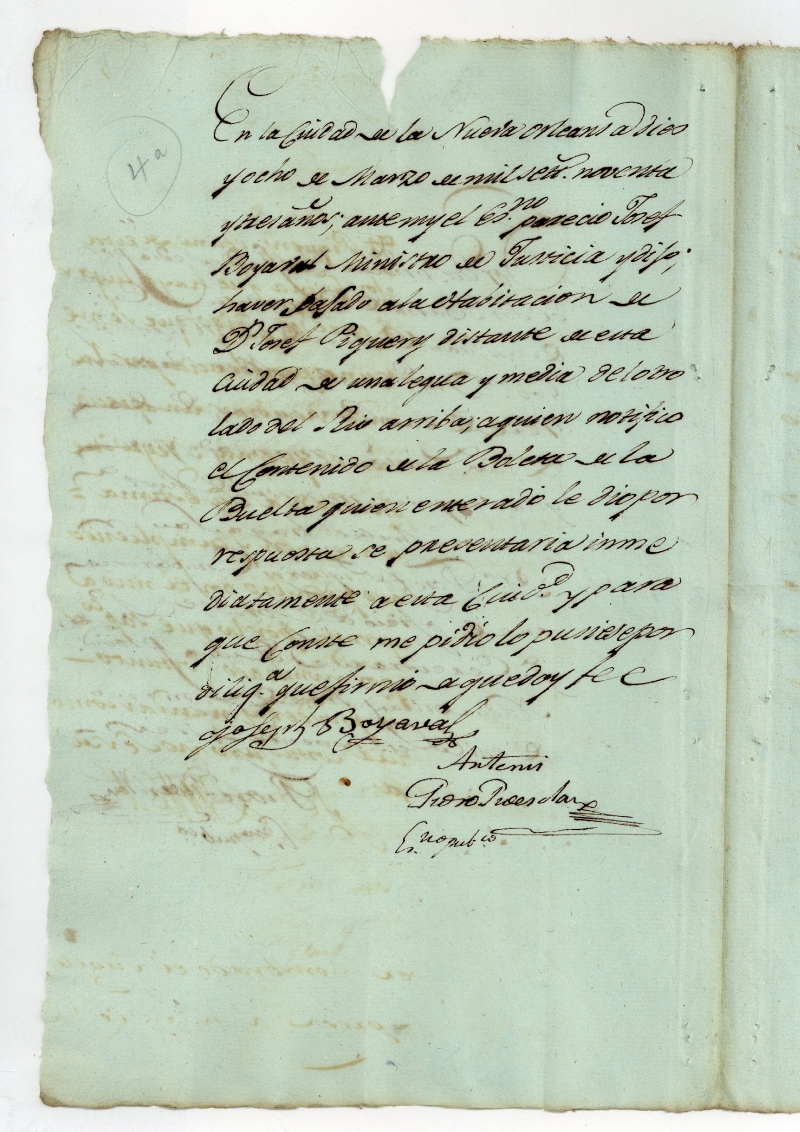 4a
En la Ciudad de la Nueva Orleans a dies
y ocho de Marzo de mil setc. noventa
y tres años; ante my el Es.no parecio Josef
Boyaval Ministro de Justicia y dijo;
haver pasado a la Habitacion de
Dn Josef Piquery distante de esta
Ciudad de una legua y media del otro
lado del Rio arriba; a quien notifico
el Contenido de la Boleta de la
Buelta quien enterado le dio por
respuesta se presentaria inme
diatamente a esta Ciud.d y para
que Conste me pidio lo pusiese por
dilig.a que firmó de que doy fee
Joseph Boyaval
Antemi
Pedro Pedesclaux
Es.no pub.co